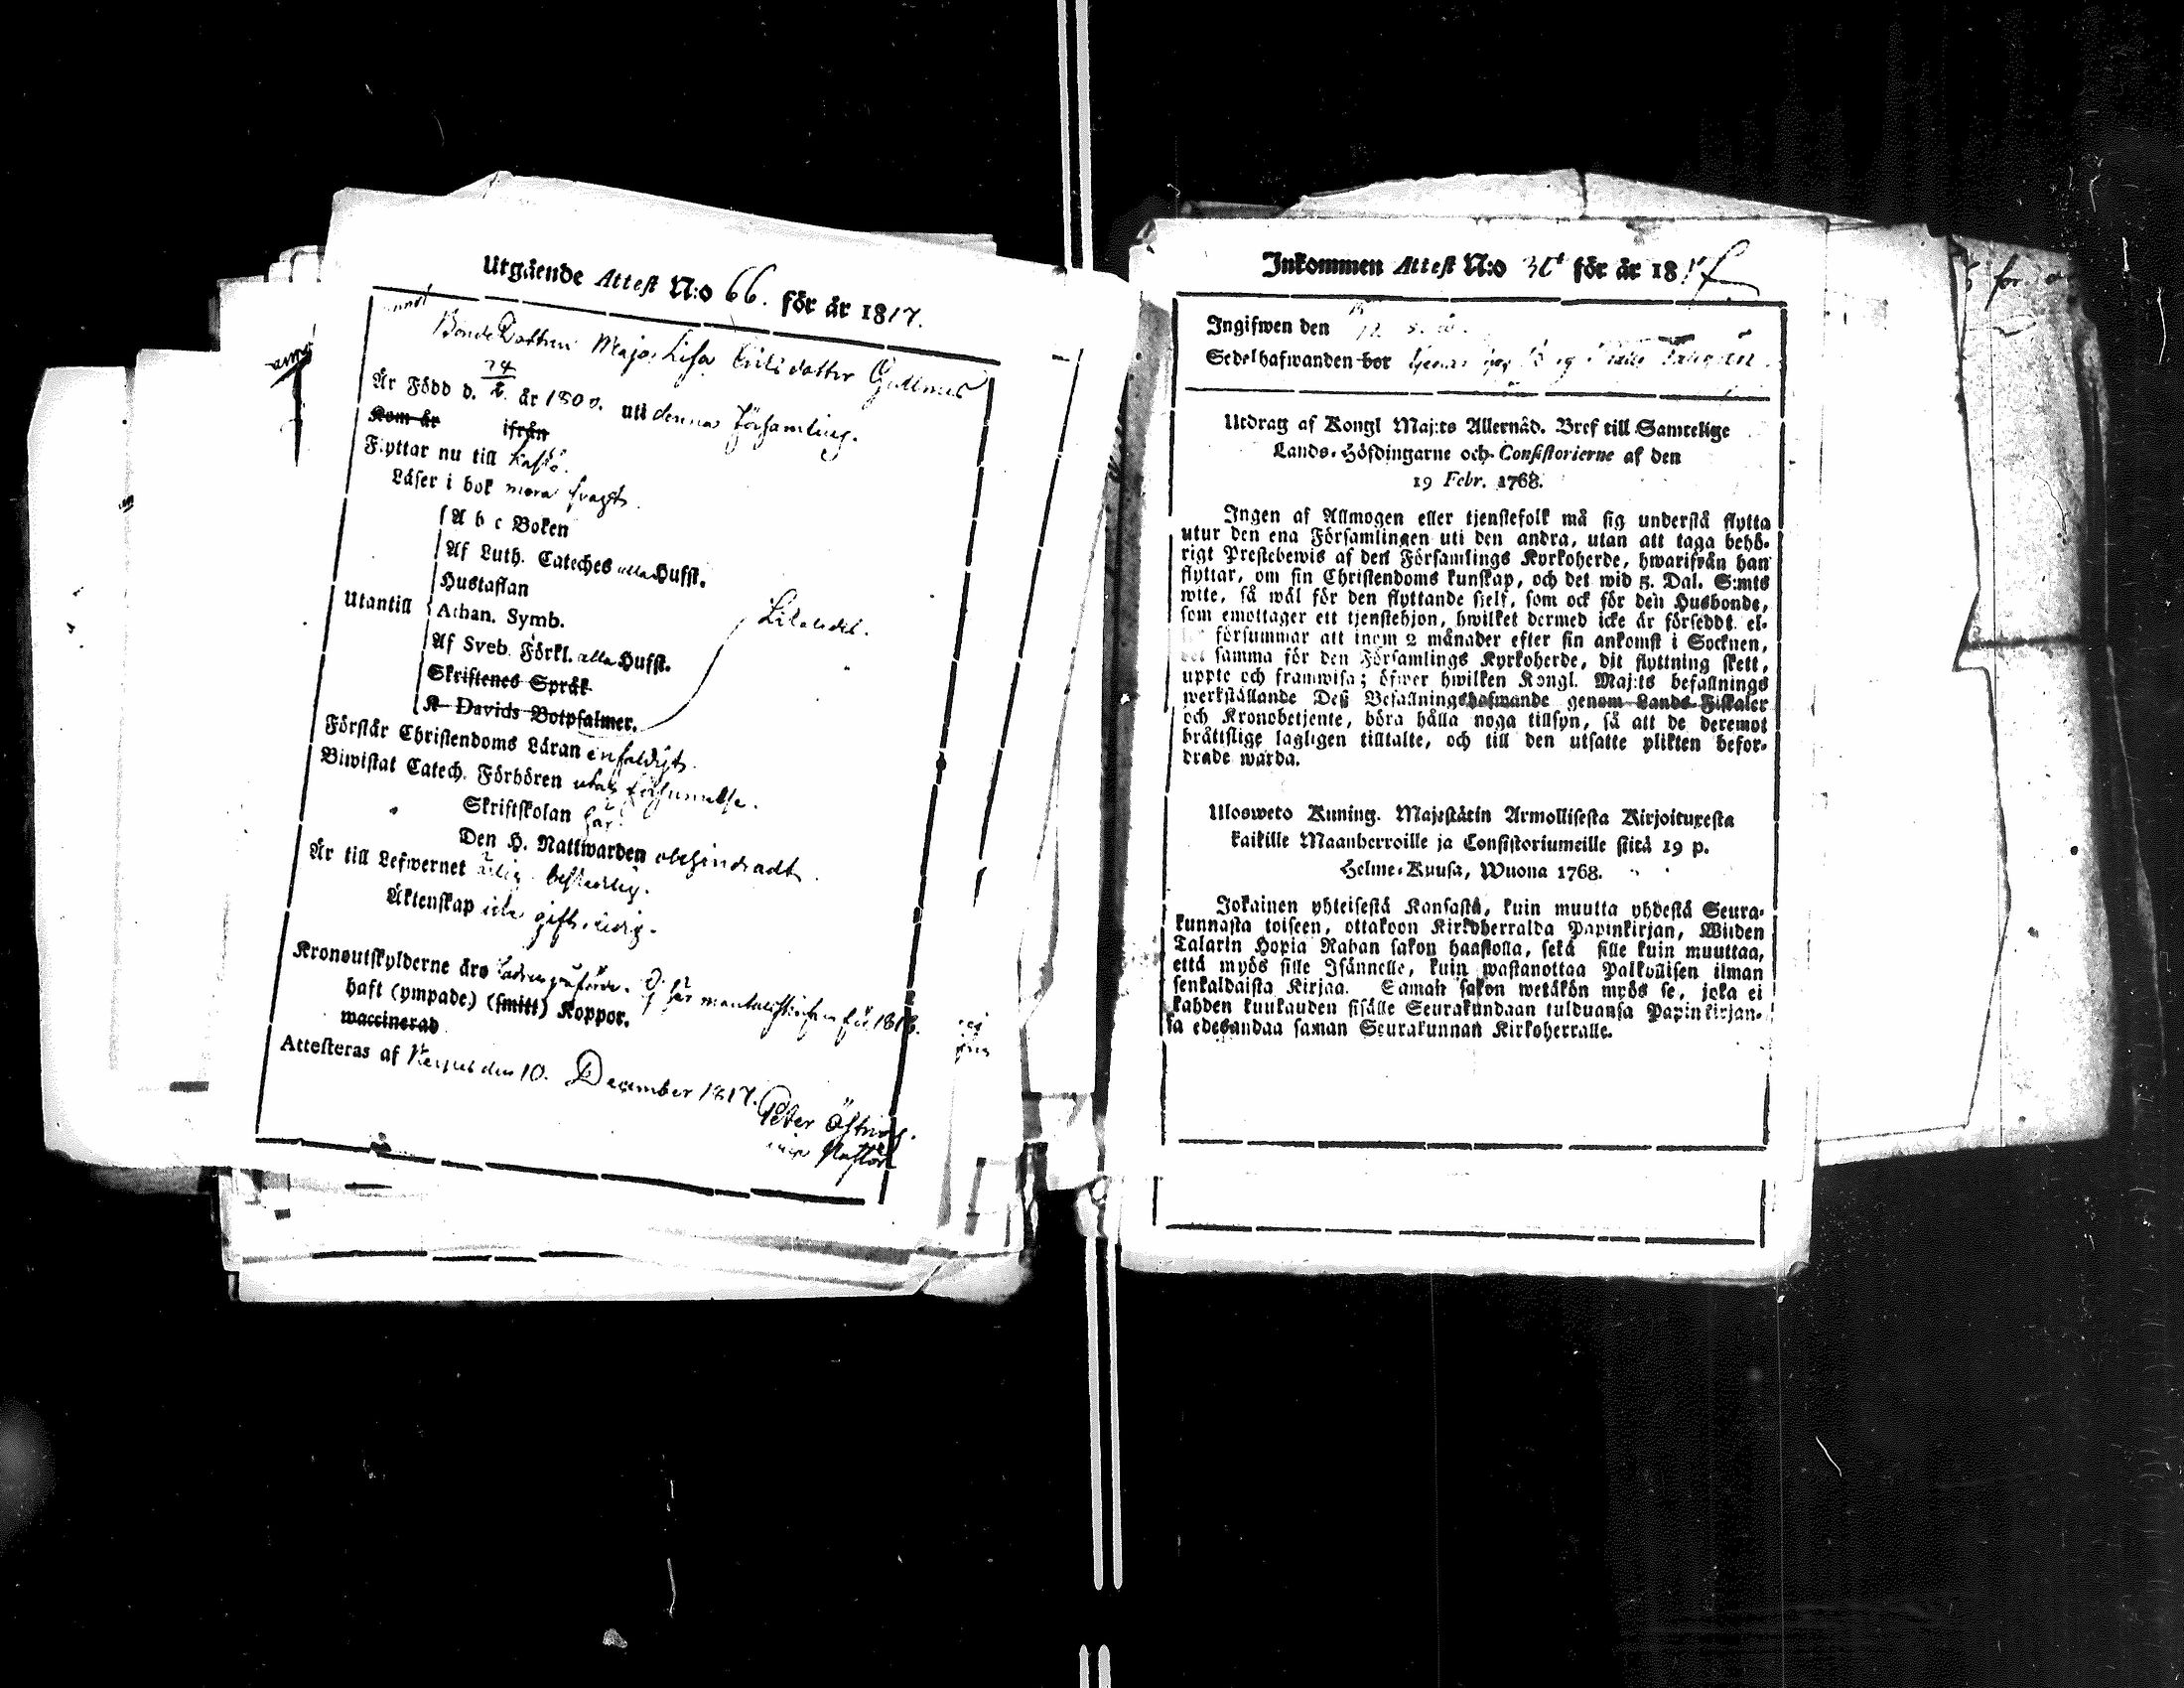 Utgående Attest N:o 66. för år 1817.
Bonde Dottren Maja Lisa
Är Född d. 24 år 1800. uti denna Församling.
Kom år ifrån
Flyttar nu till Kaskö.
Läser i bok
A b c Boken
Af Luth. Cateches alla Hufst.
Hustaflan
Utantill
Athan. Symb.
Af Sveb. Förkl. alla Hufst.
Skriftenes Språk
K. Davids Botpsalmer.
Förstår Christendoms Läran enfaldigt.
Biwistat Catech. Förhören utan försummelse.
Skriftskolan här
Den H. Nattwarden obehindradt.
Är till Lefwernet ärlig beskedlig.
Äktenskap icke gift, ledig.
Kronoutskylderne äro
haft (ympade) (smitt) Koppor.
waccinerad
Attesteras af den 10. December 1817.
Peter
Inkommen Attest N:o för år 18
Ingifwen den
Sedelhafwanden bor
Utdrag af Kongl Maj:ts Allernåd. Bref till Samtelige
Lands-Höfdingarne och Consistorierne af den
19 Febr. 1768.
Ingen af Allmogen eller tjenstefolk må sig understå flytta
utur den ena Församlingen uti den andra, utan att taga behö-
rigt Prestebewis af den Församlings Kyrkoherde, hwarifrån han
flyttar, om sin Christendoms kunskap, och det wid 5. Dal. S:mts
wite, så wäl för den flyttande sjelf, som ock för den Husbonde,
som emottager ett tjenstehjon, hwilket dermed icke är förseddt el-
försummar att inom 2 månader efter sin ankomst i Socknen,
samma för den Församlings Kyrkoherde, dit flyttning skett,
uppte och framwisa; öfwer hwilken Kongl. Maj:ts befallnings
werkställande Deß Befallningshafwande genom Lands-Fiskaler
och Kronobetjente, böra hålla noga tillsyn, så att de deremot
bråttslige lagligen tilltalte, och till den utsatte plikten befor-
drade warda.
Ulosweto Kuning. Majestätin Armollisesta Kirjoituxesta
kaikille Maanherroille ja Consistoriumeille siitä 19 p.
Helme-Kuusa, Wuona 1768.
Jokainen yhteisestä Kansasta, kuin muutta yhdestä Seura-
kunnasta toiseen, ottakoon Kirkoherralda Papinkirjan, Wiiden
Talarin Hopia Rahan sakon haastolla, sekä sille kuin muuttaa,
että myös sille Isännelle, kuin wastanottaa Palkollisen ilman
senkaldaista Kirjaa. Saman sakon wetäkön myös se, joka ei
kahden kuukauden sisälle Seurakundaan tulduansa Papinkirjan-
sa edesandaa saman Seurakunnan Kirkoherralle.